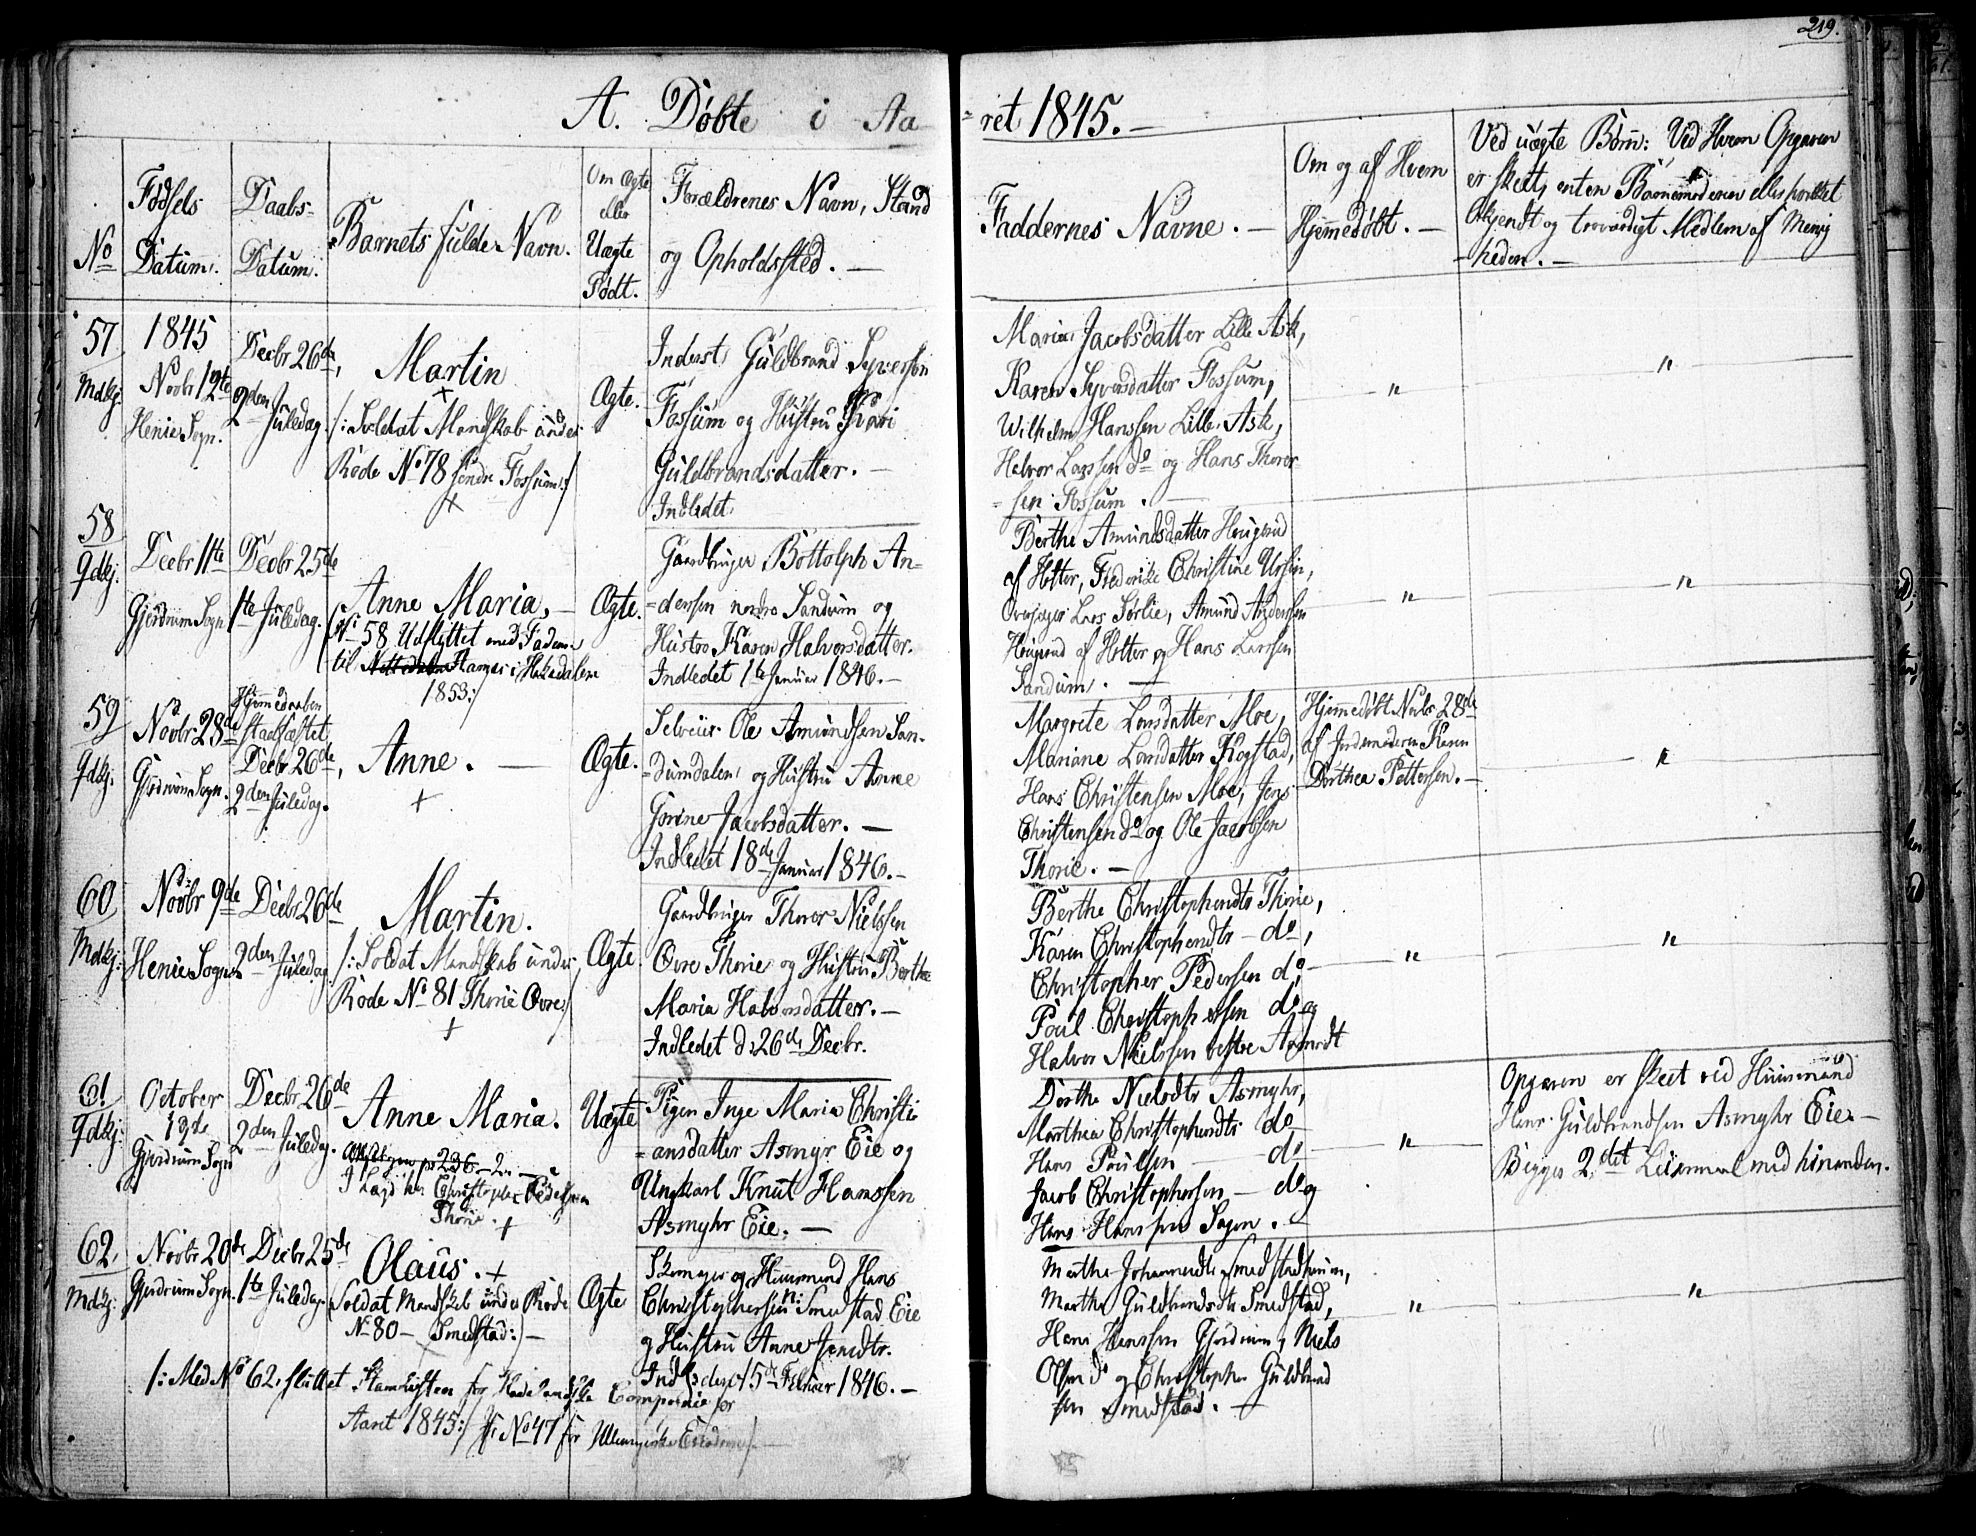 219.
A. Døbte i Aa-
-ret 1845. -
No
Fødsels Datum.
Daabs- Datum.
Barnets fulde Navn.
Om Ægte eller Uægte Født.
Forældrenes Navn, Stand og Opholdssted. -
Faddernes Navne. -
Om og af Hvem Hjemmedøbt. -
Ved uægte Børn: Ved Hvem Opgaven
er skeet, enten Barnemoderen eller hvilket
bekjendt og troværdigt Medlem af Menig
-heden. -
57
Mdkj.
1845
Novbr 12te
Henie Sogn.
Decbr 26de,
2den Juledag.
Martin
+
/: Soldat Mandskab under
Rode No 78 søndre Fossum :/
+
Ægte.
Inderst Guldbrand Syversen
Fossum og Hustru Kari
Guldbrandsdatter. -
Indledet
Maria Jacobsdatter Lille Ask,
Karen Syversdatter Fossum,
Wilhelm Hanssen Lille Ask,
Helvor Larssen do og Hans Thorer
-sen Fossum. -
"
"
58
Qdkj.
Decbr 11te
Gjerdrum Sogn
Decbr 25de
1te Juledag.
Anne Maria, -
(No 58 Udflyttet med Faderen
til Hakedalen
1853 :/
Ægte.
Gaardbruger Bottolph An-
-dersen nordre Sandum og
Hustro Karen Halvorsdatter.
Indledet 1te Januar 1846. -
Berthe Amundsdatter Hougerud
af Holter, Frederike Christine Ursin,
Overjæger Lars Sørlie, Amund Andersen
Hougerud af Holter og Hans Larssen
Sandum. -
"
"
59
Qdkj.
Novbr 28de
Gjerdrum Sogn.
Hjemmedaaben
stadfæstet
Decbr 26de,
2den Juledag.
Anne. -
+
Ægte.
Selveier Ole Amundsen San-
-dumdalen og Hustru Anne
Gorine Jacobsdatter. -
Indledet 18de Januar 1846. -
Margrete Larsdatter Moe,
Mariane Larsdatter Kogstad,
Hans Christensen Moe, Jens
Christensen do og Ole Jacobsen
Thorie. -
Hjemmedøbt Novbr 28de
af Jordemoderen Karen
Dorthea Pettersen. -
"
60
Mdkj.
Novbr 9de
Henie Sogn
Decbr 26de
2den Juledag
Martin.
/: Soldat Mandskab under
Rode No 81 Thorie Øvre :/
+
Ægte.
Gaardbruger Thorer Nielssen
Øvre Thorie og Hustru Berthe
Maria Halvorsdatter. -
Indledet d: 26de Decbr.
Berthe Christophersdtr Thorie,
Karen Christophersdtr - do,
Christopher Pedersen do,
Poul Christophersen do og
Halvor Nielssen
"
"
61
Qdkj.
October
19de
Gjerdrum Sogn
Decbr 26de
2den Juledag.
Anne Maria.
Christopher Pedersen
Thorie. +
Uægte
Pigen Inge Maria Christi
-ansdatter Asmyr Eie og
Ungkarl Knut Hanssen
Asmyhr Eie. -
Dorthe Nielsdtr Asmyhr,
Marthea Christophersdtr do
Hans Poulsen - do
Jacob Christophersen - do og
Hans Hanssen Sogen. -
"
Opgaven er skeet ved Huusmand
Hans Guldbrandsen Asmyhr Eie. -
Begges 2det Leiermaal med hinanden.
62,
Mdkj.
Novbr 20de
Gjerdrum Sogn.
Decbr 25de
1te Juledag.
Olaus. +
(Soldat Mandskab under Rode
No 80 - Smedstad :) -
Ægte
Skomager og Huusmand Hans
Christophersen Smedstad Eie
og Hustru Anne Jensdtr.
Indledet 15de Februar 1846. -
Marthe Johannesdtr Smedstadhuun,
Marthe Guldbrandsdtr Smedstad,
Hans Hanssen Gjerdrum, Niels
Olsen do og Christopher Guldbrand
sen Smedstad. -
"
"
/: Med No 62, sluttet Stamlisten for Hadelandske Compagnie for
Aaret 1845 :/
No 47 for